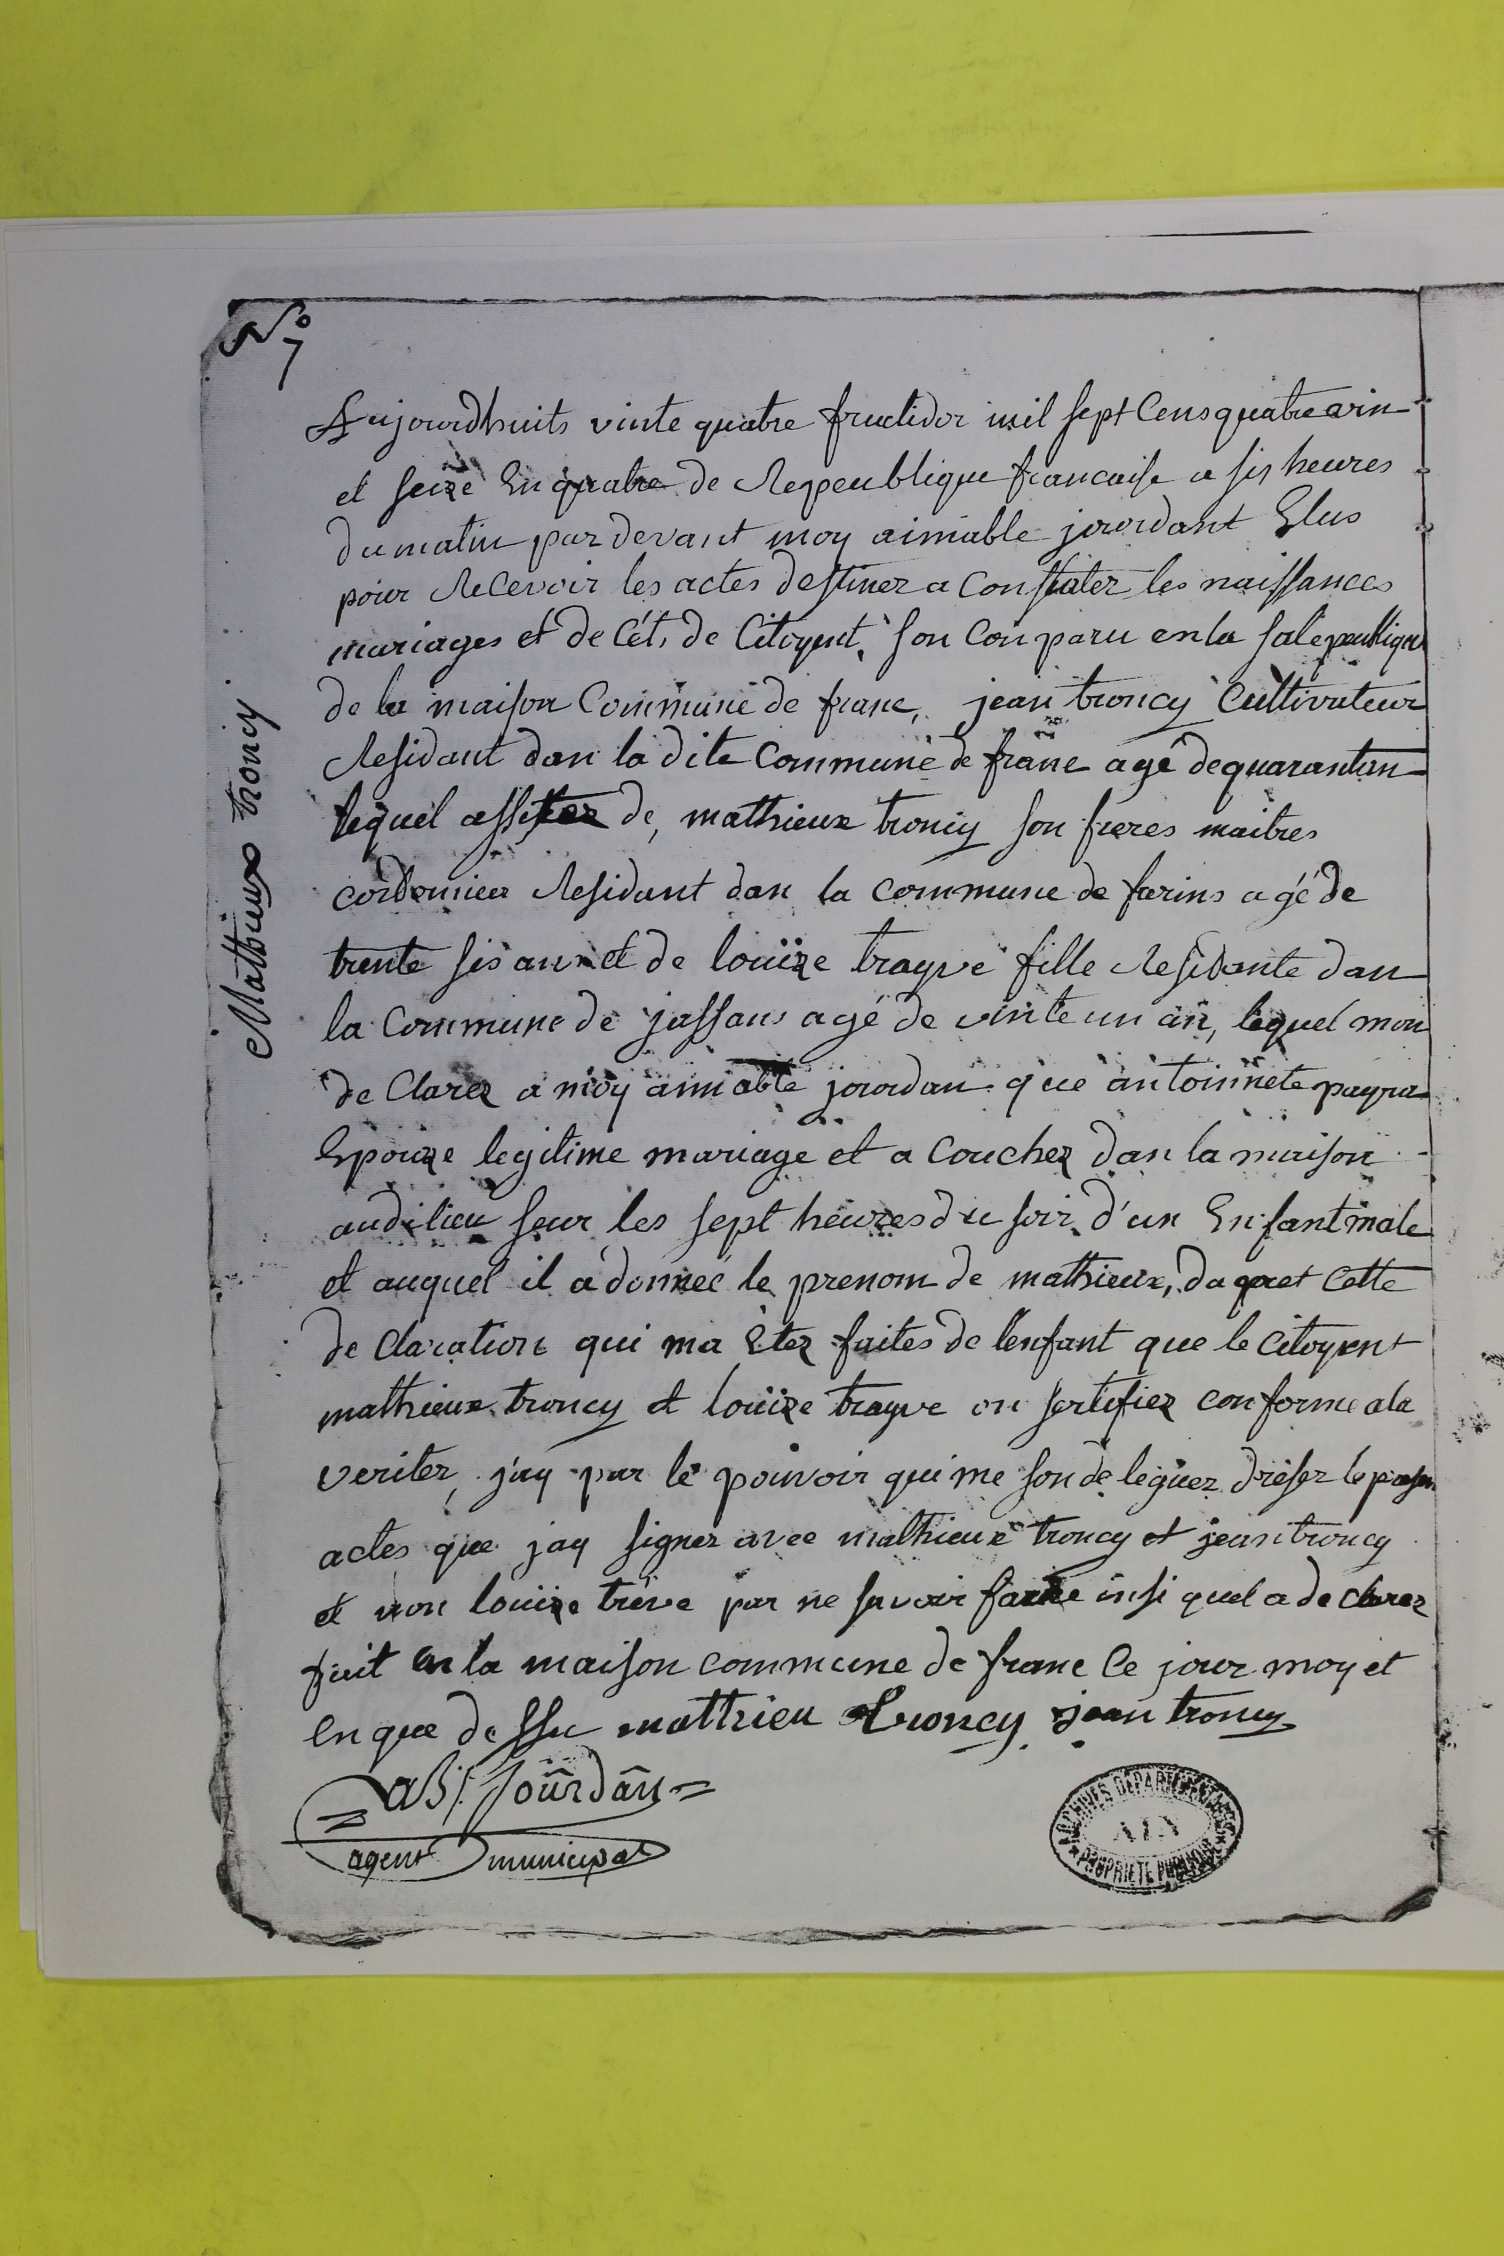 No
7
Aujourdhuits vinte quatre fructidor mil sept Cens quatre vin
et seize En quatre de Repeublique francaise a sis heures
du matin par devant moy aimable jourdant Elus
pour Recevoir les actes destinez a Constater les naissances
mariages et de Cét, de Citoyent, son Conparu en la sale peublique
de la maison Commune de franc, jean troncy Cultivateur
Residant dan la dite Commune de franc agé de quarantan
lequel assistez de, mathieux troncy son freres maitres
cordonnier Residant dan la commune de farins agé de
trente sis ans et de louïze trayve fille Residante dan
la Commune de jassans agé de vinte un an, lequel mon
de Clarez a moy aimable jourdan que antoinnete payra
Epouze legitime mariage et a Couchez dan la maison
audilieu seur les sept heures du soir d'un Enfant male
et auquel il a donneé le prenom de mathieux, da pret Cette
de Claration qui ma Etez faites de lenfant que le Citoyent
mathieux troncy et louïze trayve on sertifiez conforme a la
veriter, j'ay par le pouvoir qui me son de leguez dresez le
actes que jay signez avec mathieux troncy et jean troncy
et non louïze tréve par ne savoir faire insi quel a de Clarez
fait en la maison commune de franc Ce jour moy et
en que dessu mathieu troncy jean troncy
aB. Jourdan
agent municipal
Mathieux troncy
ARCHIVES DÉPARTEMENTALES
AIN
PROPRIÉTÉ PUBLIQUE